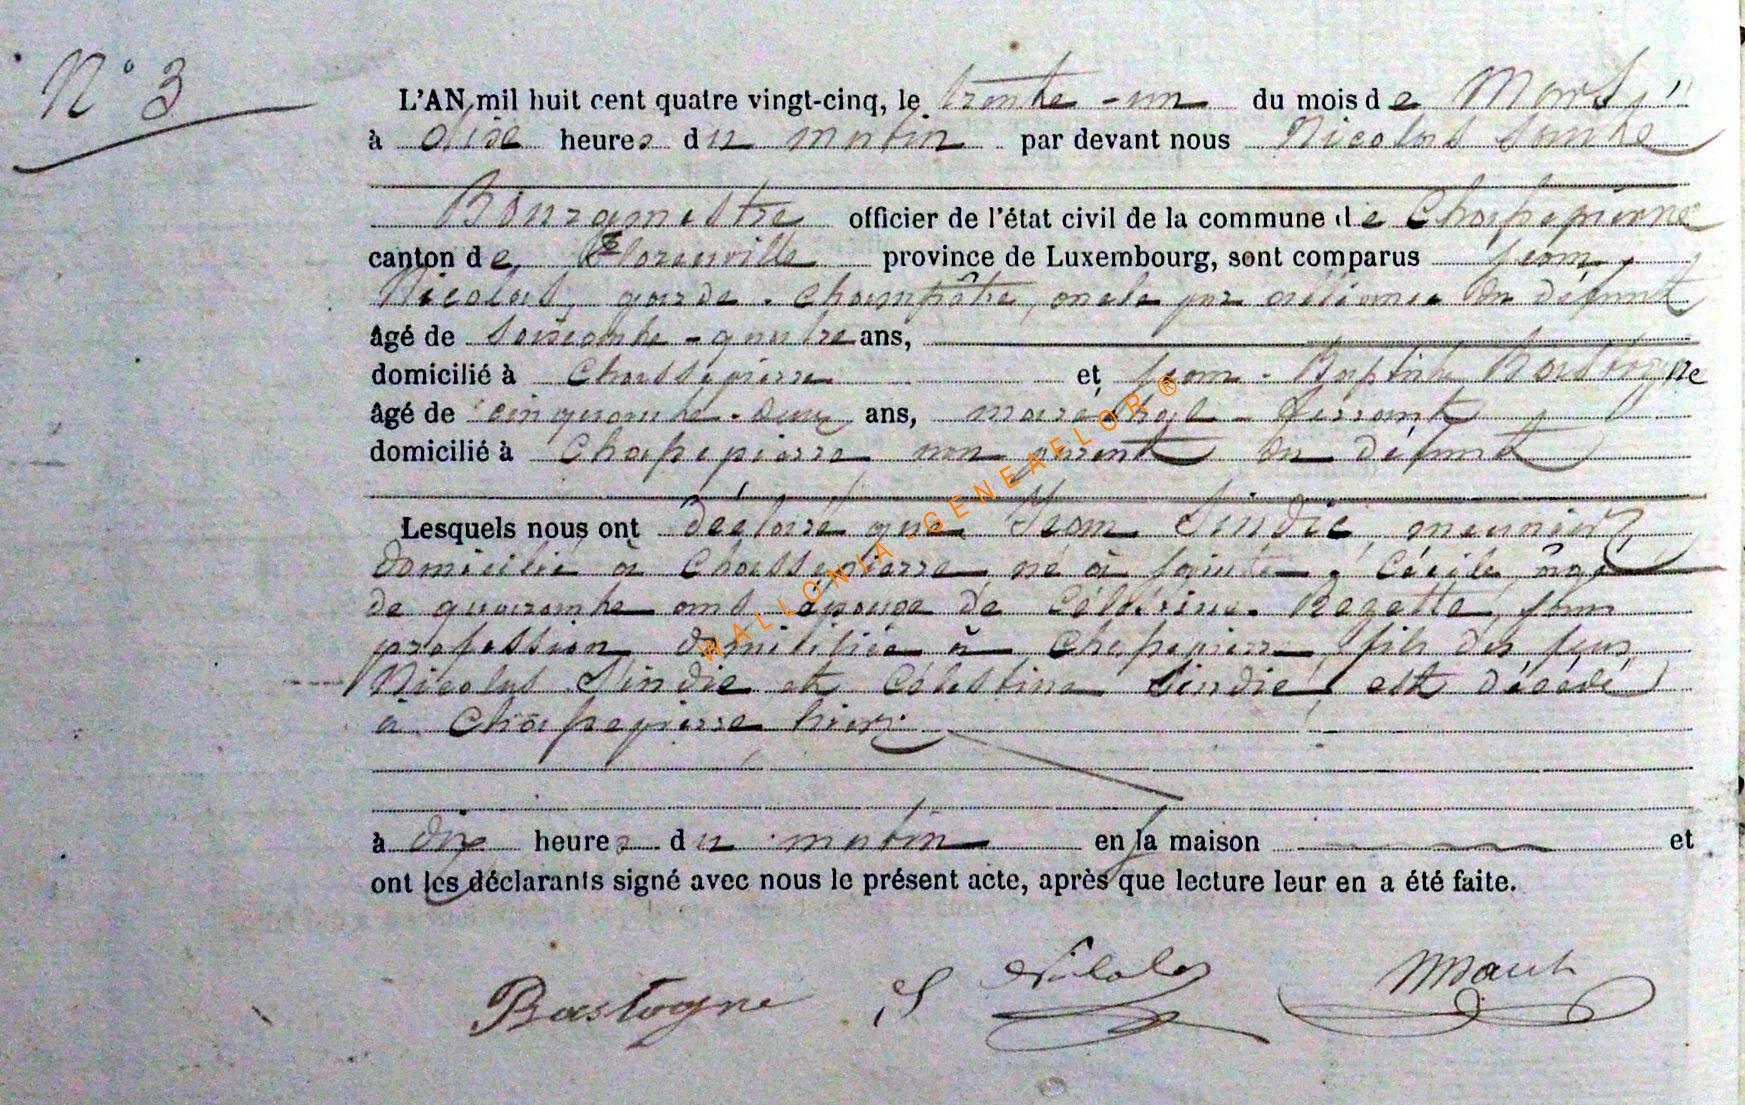 N° 3
L'AN mil huit cent quatre vingt-cinq, le trente-un du mois de Mars,
à onze heures du matin par devant nous Nicolas
Bourgmestre officier de l'état civil de la commune de Chassepierre
canton de Florenville province de Luxembourg, sont comparus Jean,
Nicolas, garde-champêtre, oncle par alliance du défunt
âgé de soixante-quatre ans,
domicilié à Chassepierre et Jean-Baptiste Bastogne
âgé de cinquante-deux ans, maréchal-ferrant,
domicilié à Chassepierre non parent du défunt
Lesquels nous ont déclaré que Jean Sindic, meunier,
domicilié à Chassepierre né à Sainte-Cécile, âgé
de quarante ans, époux de Rezette, sans
profession, domiciliée à Chassepierre, fils des feus
Nicolas Sindic et Célestine Sindic, est décédé
à Chassepierre hier,
à dix heures du matin en la maison et
ont les déclarants signé avec nous le présent acte, après que lecture leur en a été faite.
Bastogne J Nicolas
WALLONIA GENEAFLOR®